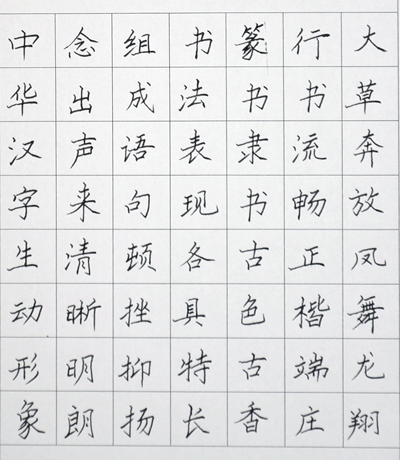 中华汉字生动形象
念出声来清晰明朗
组成语句顿挫抑扬
书法表现各具特长
篆书隶书古色古香
行书流畅正楷端庄
大草奔放凤舞龙翔